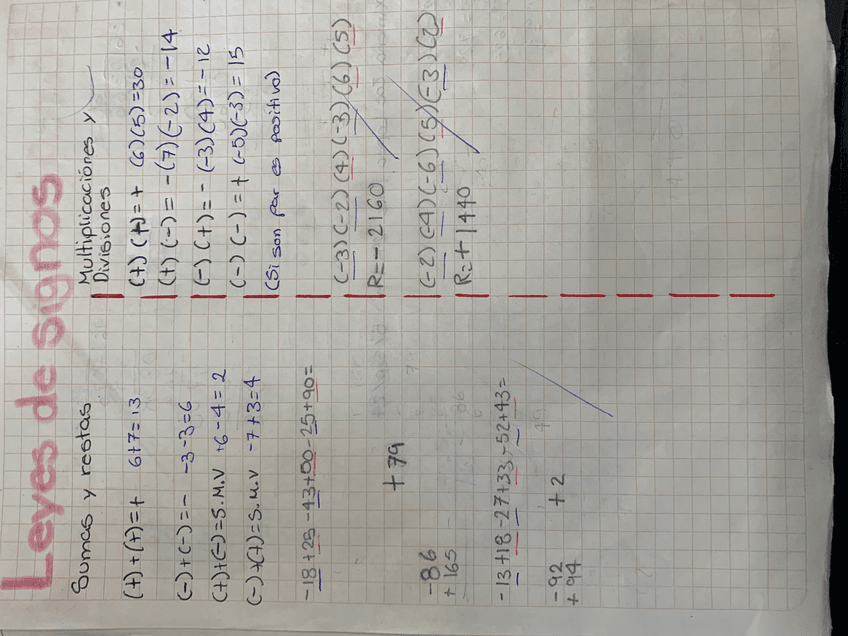 Leyes de signos
Sumas y restas
(+)+(+)=+ 6+7=13
(-)+(-)=- -3-3=6
(+)+(-)=S.M.V +6-4=2
(-)+(+)=S.M.V -7+3=4
-18+25-43+50-25+90=
+79
-86
+165
-13+18-27+33-52+43=
-92
+94
+2
Multiplicaciónes y
Divisiones
(+)(+)=+ (6)(5)=30
(+)(-)=-(7)(-2)=-14
(-)(+)=- (-3)(4)=-12
(-)(-)=+ (-5)(-3)=15
(Si son par es positivo)
(-3)(-2)(4)(-3)(6)(5)
R=-2160
(-2)(-4)(-6)(5)(-3)(2)
R=+1440